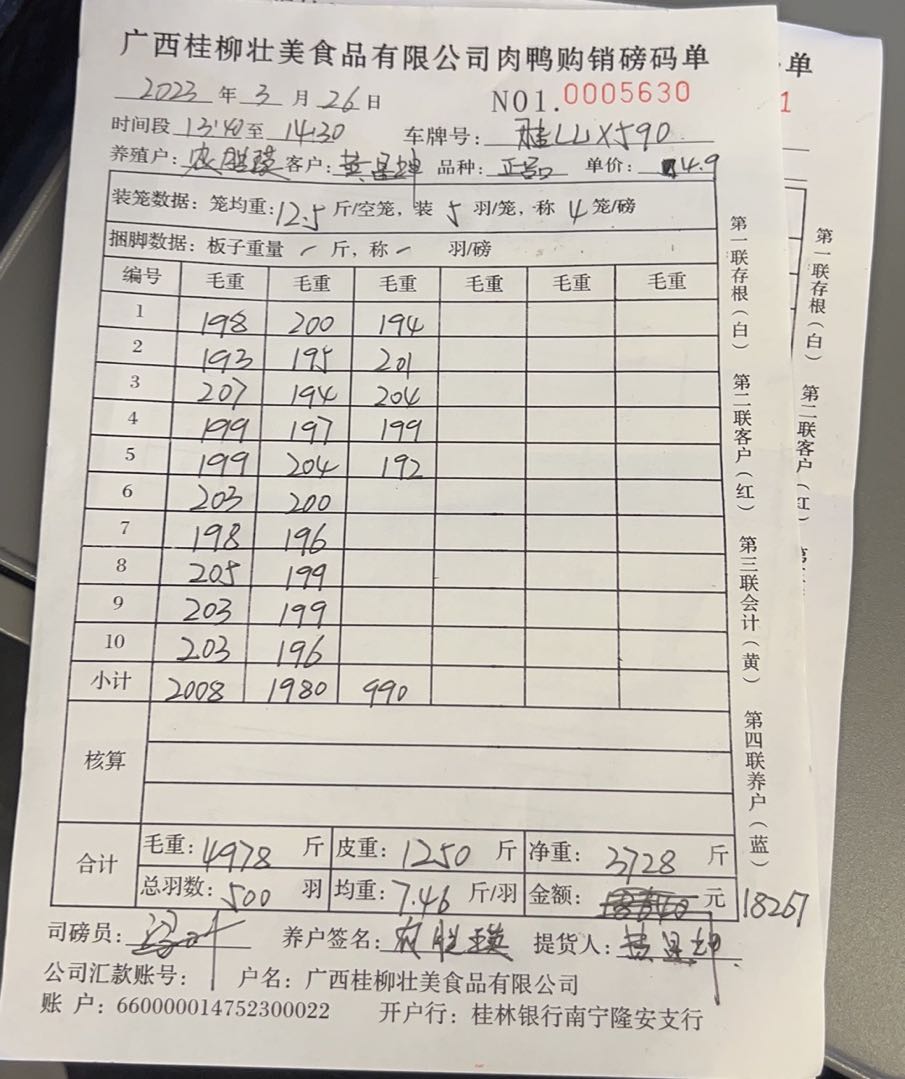 广西桂柳壮美食品有限公司肉鸭购销磅码单
2023 年 3 月 26 日 NO1.0005630
时间段 13:40 至 14:30 车牌号: 桂LLX590
养殖户: 农胜瑛 客户: 黄昌坤 品种: 正品 单价: 4.9
装笼数据: 笼均重: 12.5 斤/空笼, 装 5 羽/笼, 称 4 笼/磅
捆脚数据: 板子重量 - 斤, 称 - 羽/磅
编号 毛重 毛重 毛重 毛重 毛重 毛重
1 198 200 194
2 193 195 201
3 207 194 204
4 199 197 199
5 199 204 192
6 203 200
7 198 196
8 205 199
9 203 199
10 203 196
小计 2008 1980 990
核算
合计 毛重: 4978 斤 皮重: 1250 斤 净重: 3728 斤
总羽数: 500 羽 均重: 7.46 斤/羽 金额: 元 18267
司磅员: 养户签名: 农胜瑛 提货人: 黄昌坤
公司汇款账号: 户名: 广西桂柳壮美食品有限公司
账 户: 660000014752300022 开户行: 桂林银行南宁隆安支行
第一联存根(白) 第二联客户(红) 第三联会计(黄) 第四联养户(蓝)
单
1
第一联存根(白) 第二联客户(红)